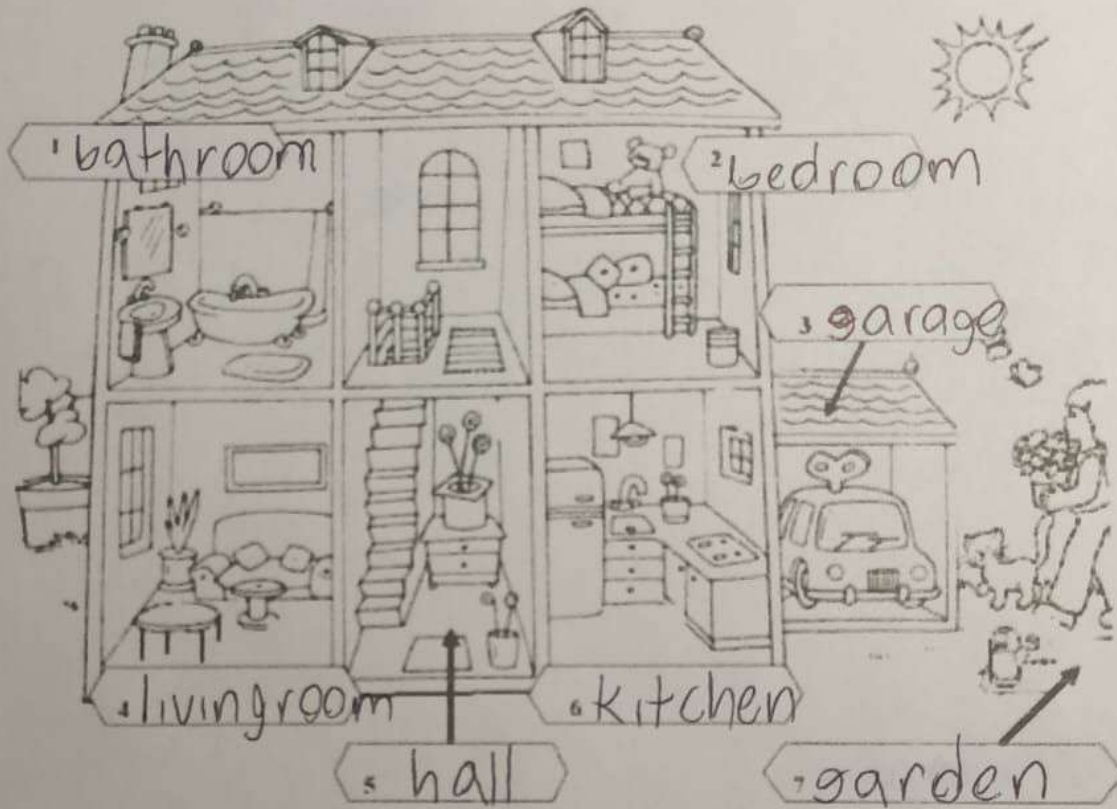 1 bathroom
2 bedroom
3 garage
4 livingroom
5 hall
6 kitchen
7 garden